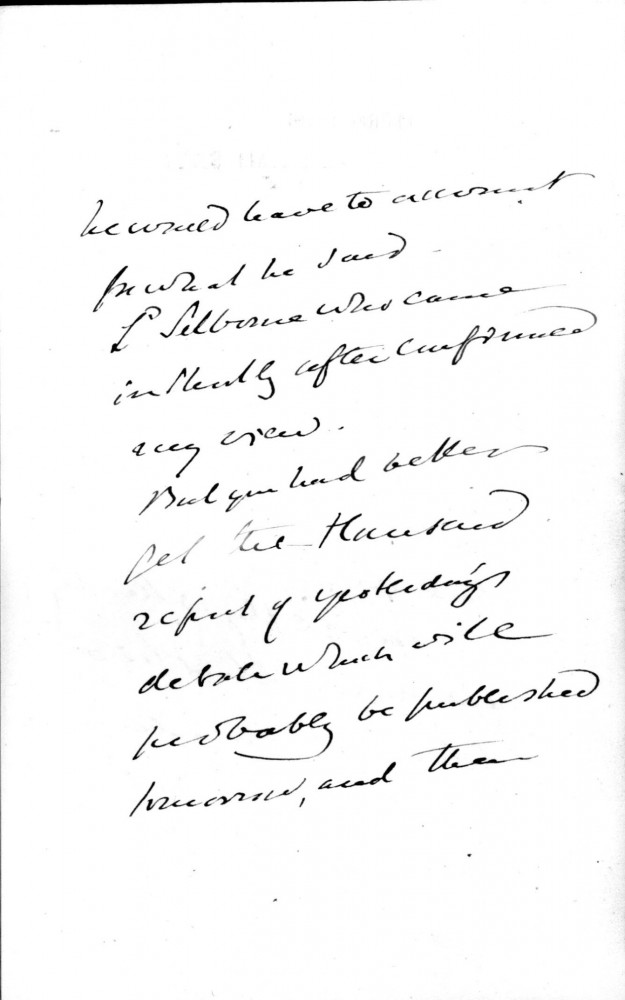 he would have to account
for what he said
Ld Selborne who came
instantly after confirmed
my view.
But you had better
get the Hansard
report of yesterday's
debate which will
probably be published
tomorrow, and then